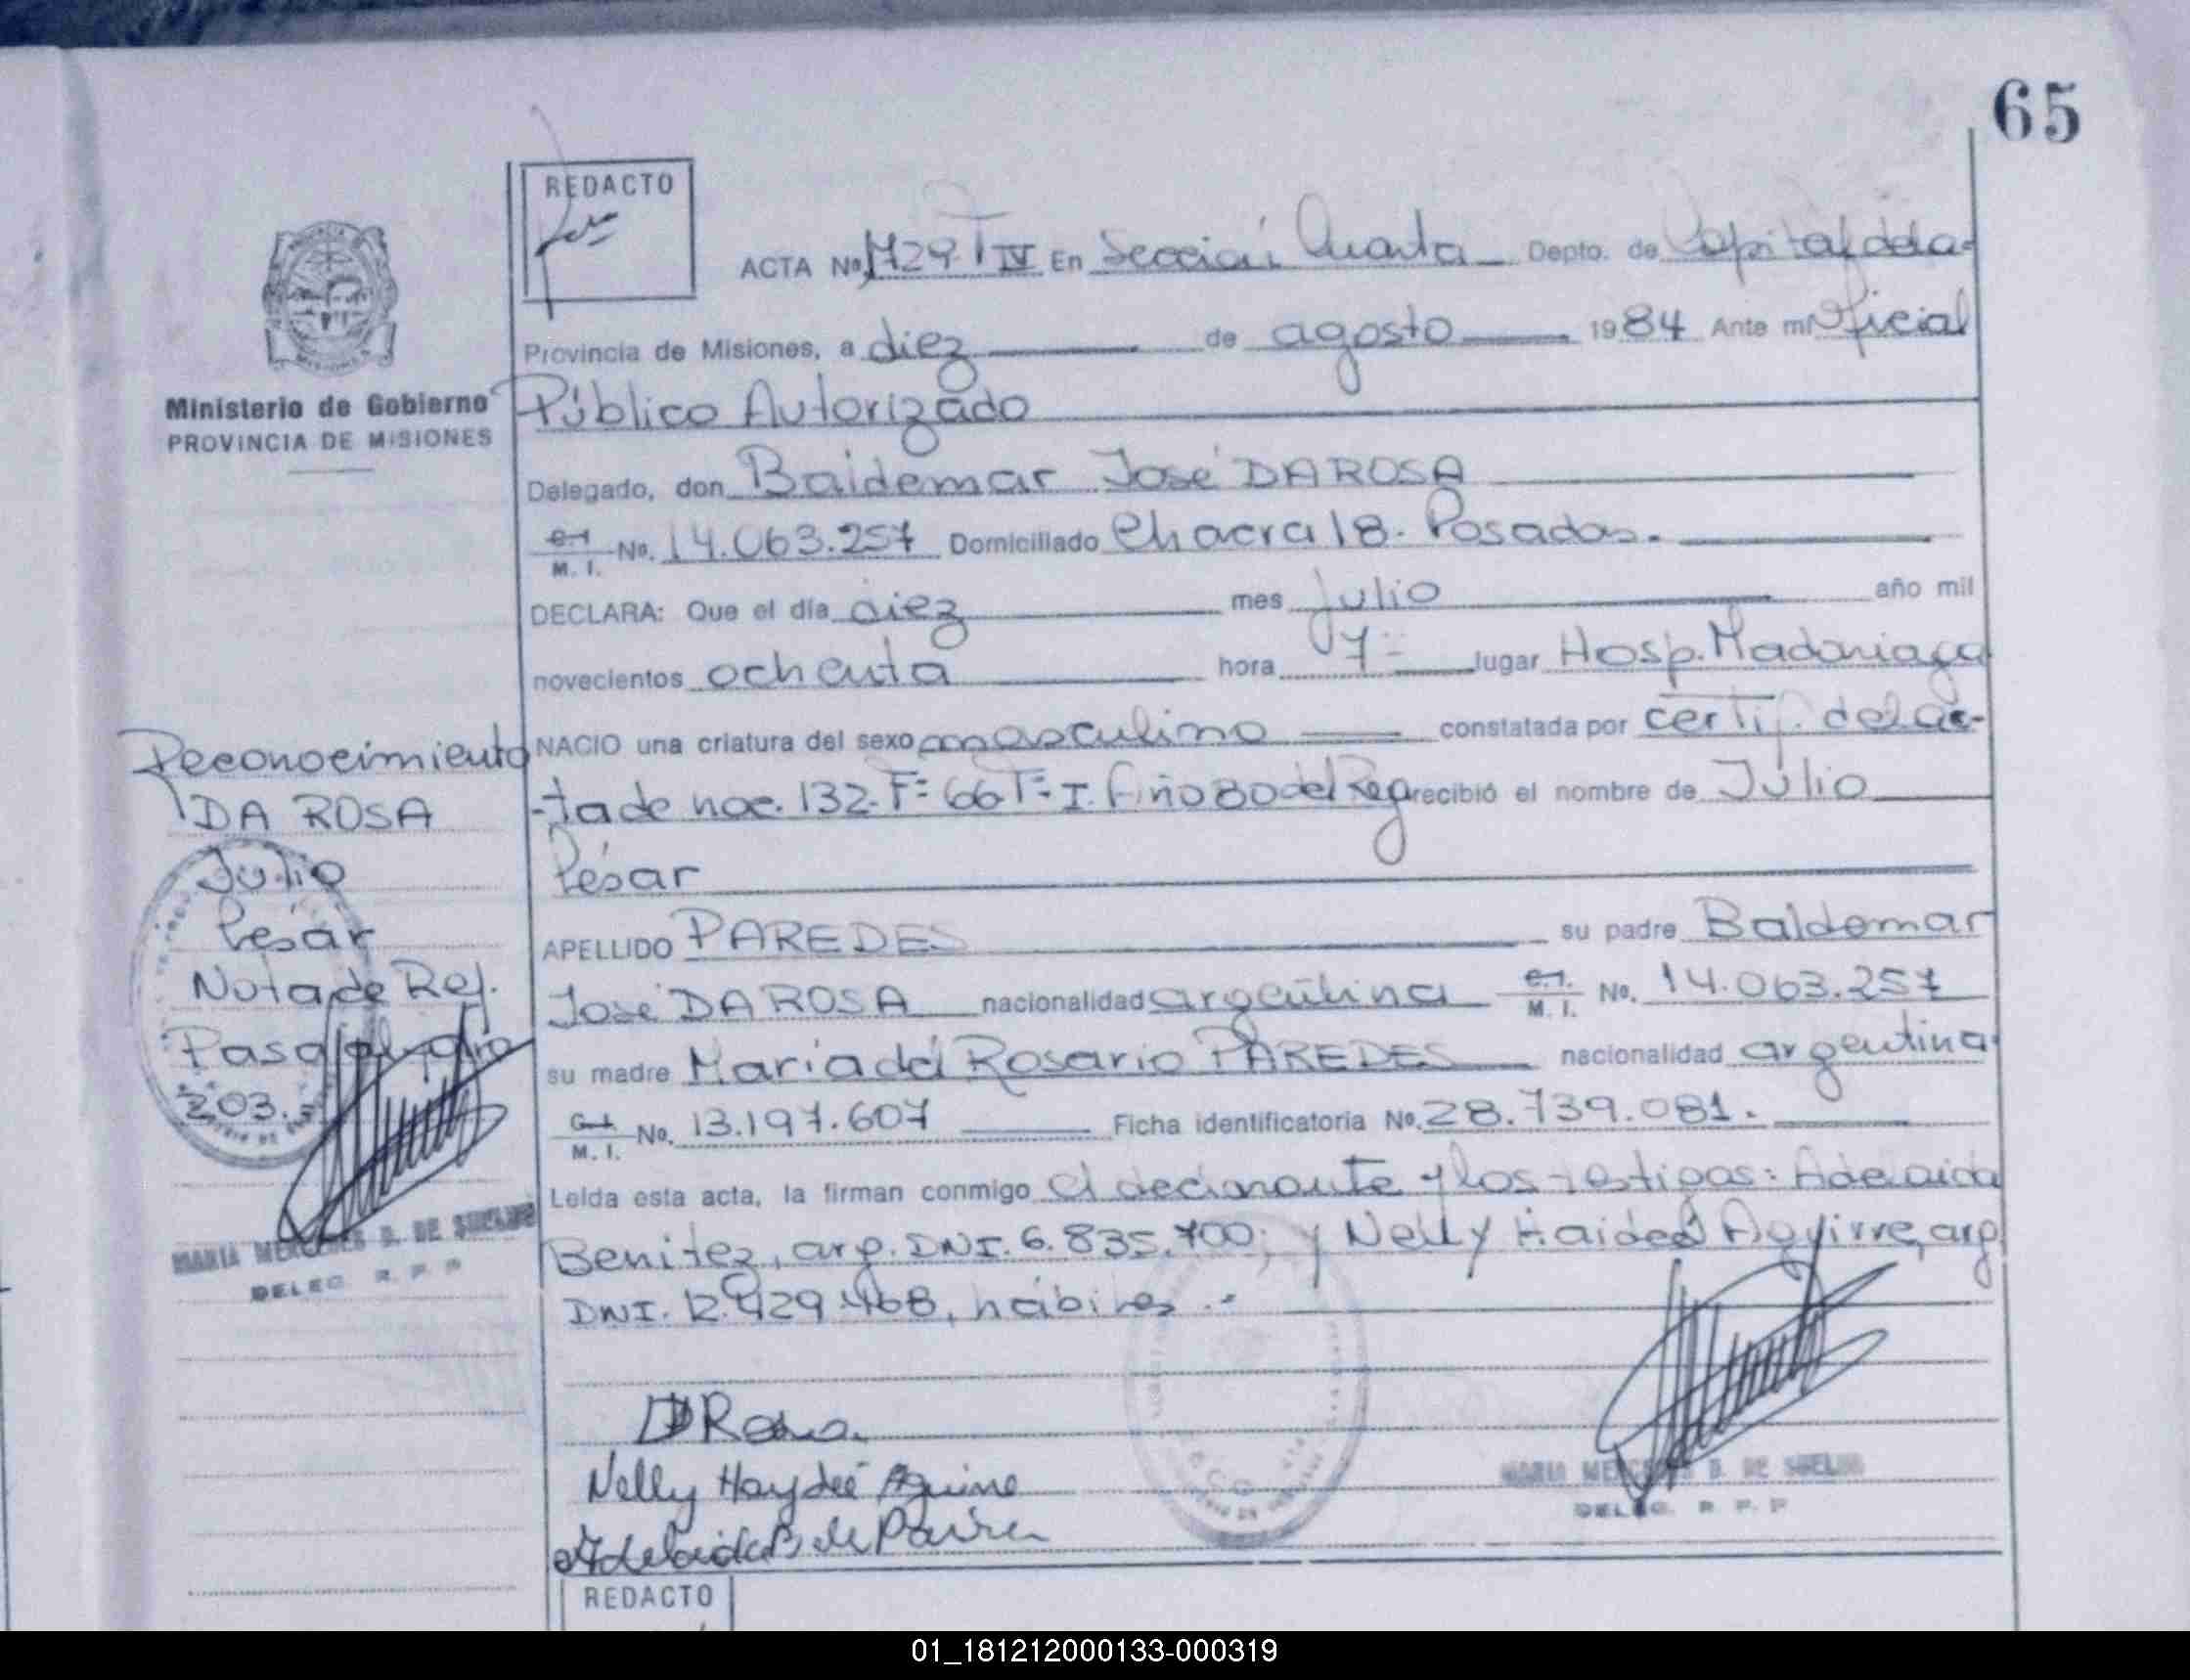 65
REDACTO
ACTA No. 1729 T IV En Sección Cuarta Depto. de Capital de la
Provincia de Misiones, a diez de agosto 1984 Ante mí Oficial
Ministerio de Gobierno
PROVINCIA DE MISIONES
Público Autorizado
Delegado, don Baldemar José DA ROSA
C.I. M. I. No. 14.063.257 Domiciliado Chacra 18. Posadas.
DECLARA: Que el día diez mes Julio año mil
novecientos ochenta hora 7 lugar Hosp. Madariaga
NACIO una criatura del sexo masculino constatada por certif. del ac-
-ta de nac. 132. F= 66 T= I. Año 80 del Reg recibió el nombre de Júlio
César
APELLIDO PAREDES su padre Baldemar
José DA ROSA nacionalidad argentina C.I. M. I. No. 14.063.257
su madre María del Rosario PAREDES nacionalidad argentina
C.I. M. I. No. 13.197.607 Ficha identificatoria No. 28.739.081.
Leída esta acta, la firman conmigo el declarante y los testigos: Adelaida
Benitez, arg. DNI. 6.835.700; y Nelly Haideé Aguirre, arg
DNI. 12.429.468, hábiles.-
Reconocimiento
DA ROSA
Júlio
César
Nota de Ref.
Pasa al folio
203.
MARIA MERCEDES B. DE SUELDO
DELEG. R. P. P
Da Rosa.
Nelly Haydeé Aguirre
Adelaida B de
MARIA MERCEDES B. DE SUELDO
DELEG. R. P. P
REDACTO
01_181212000133-000319